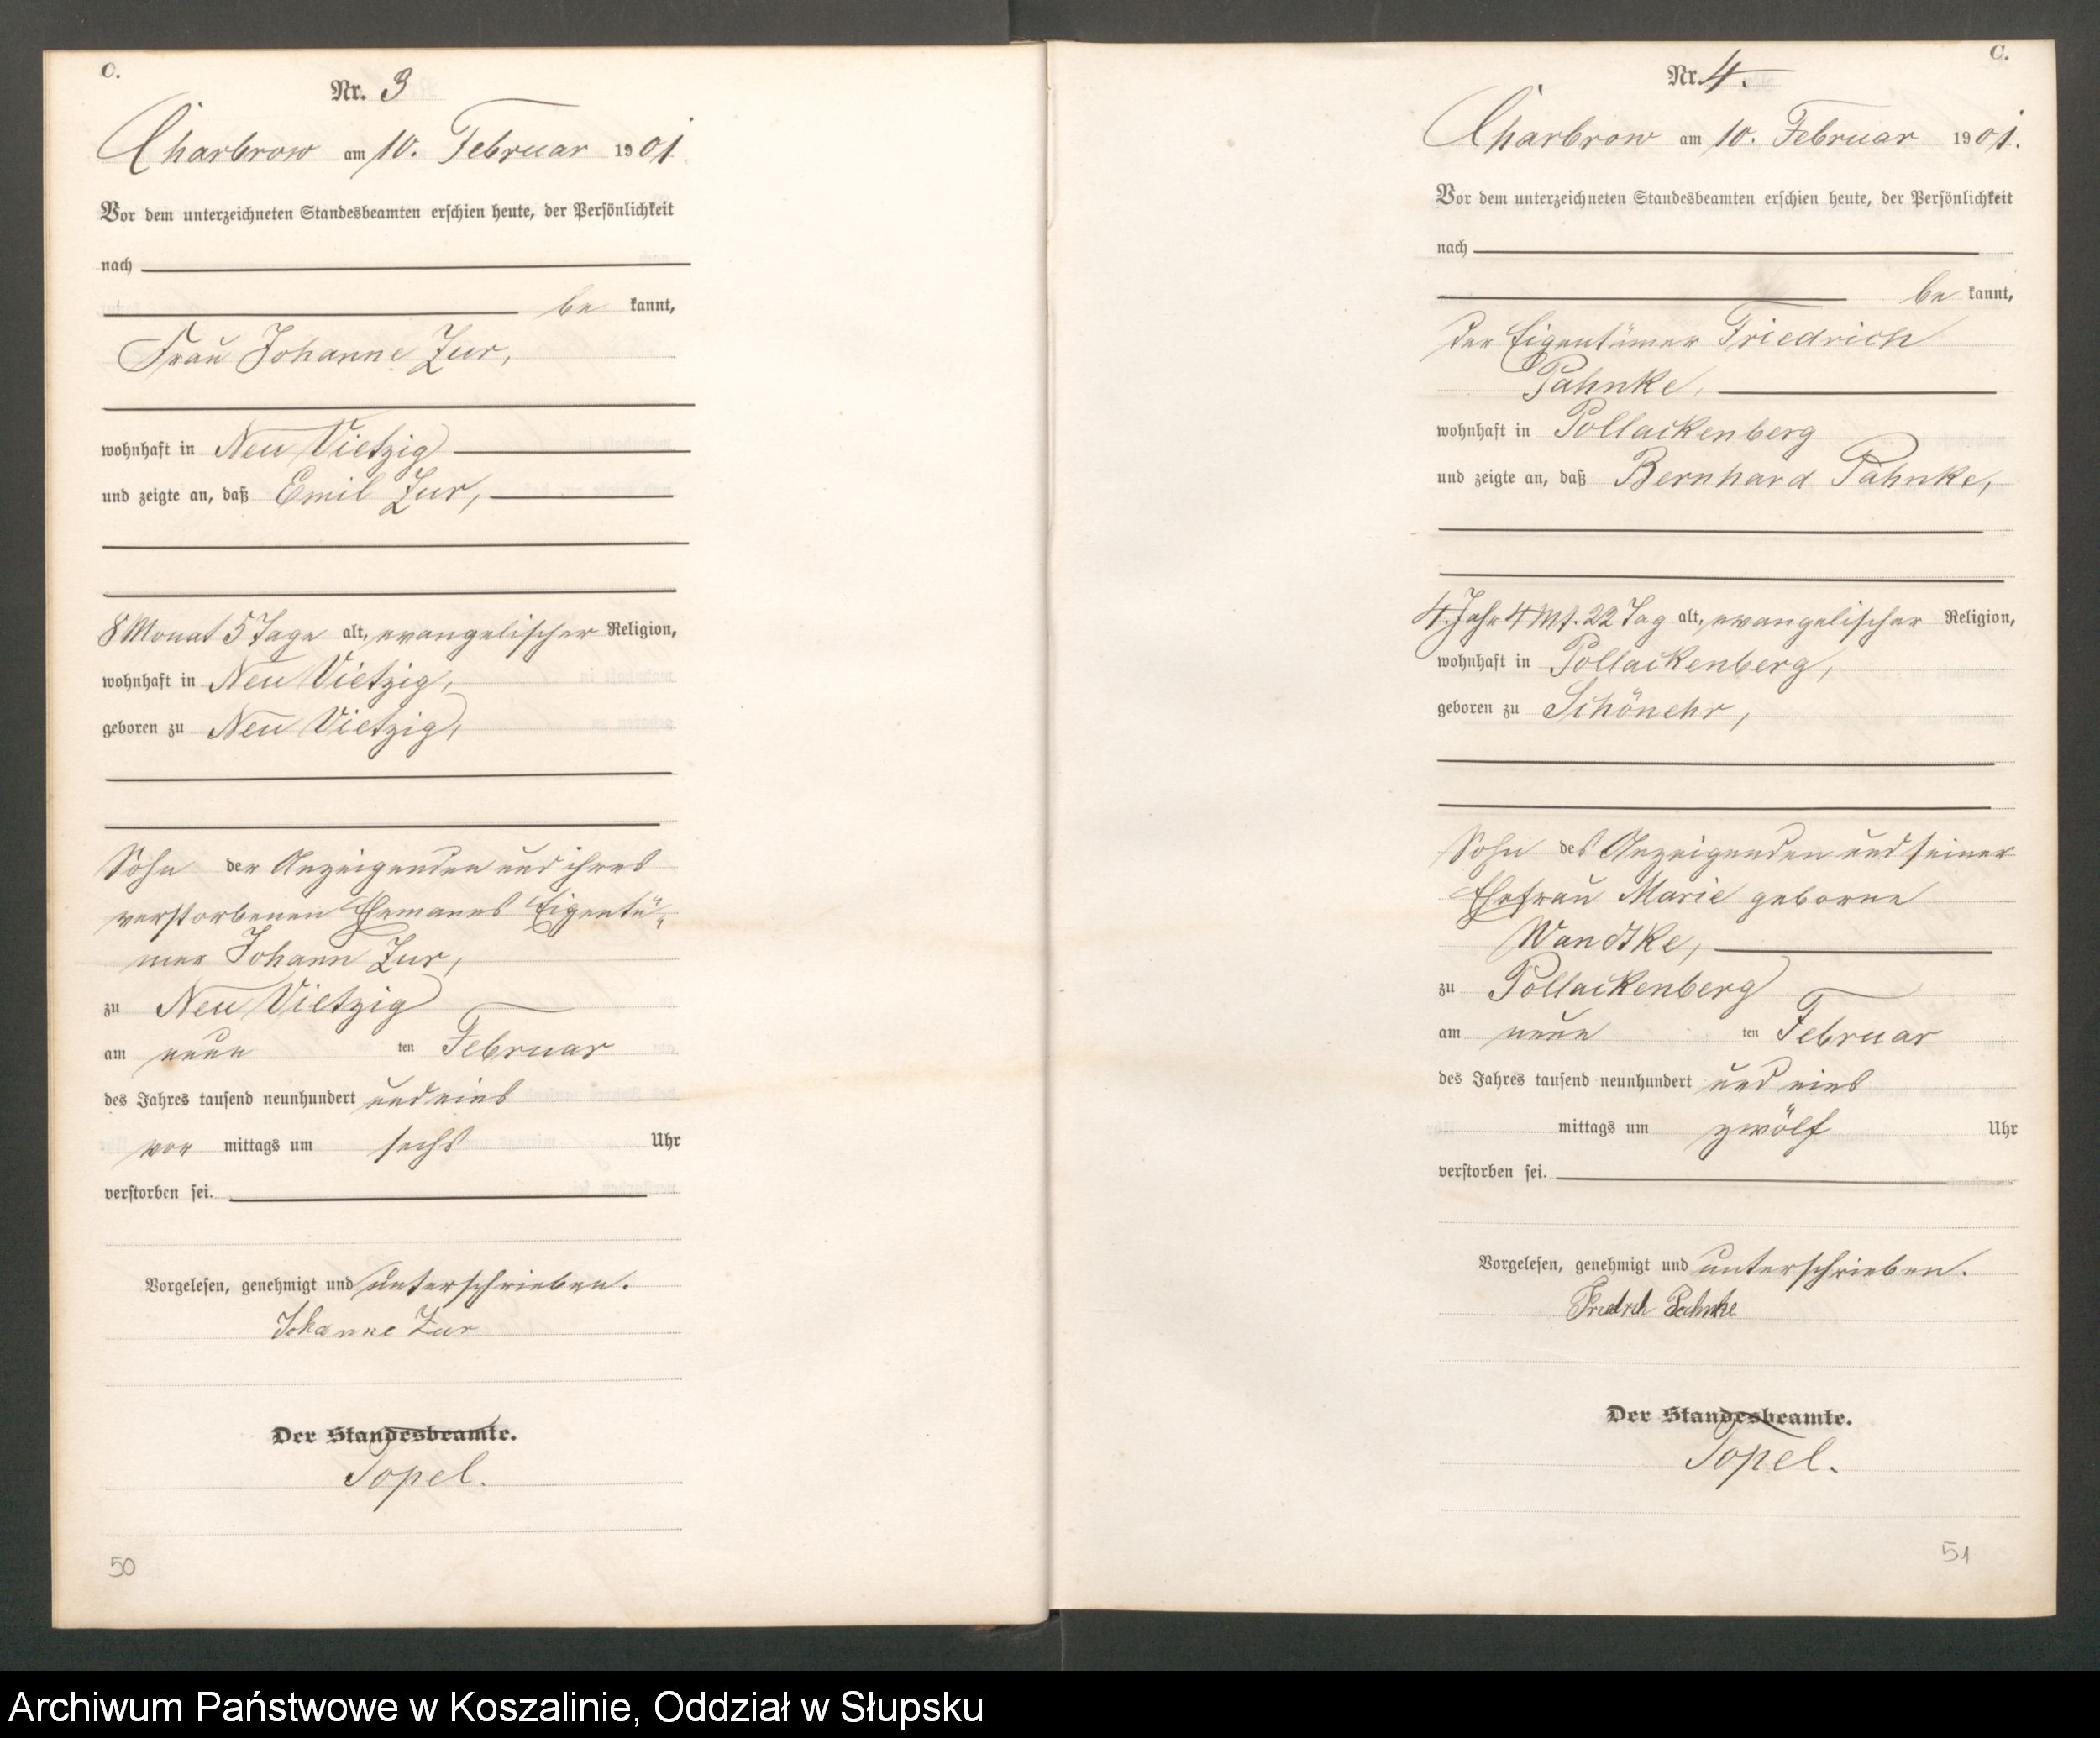 C.
Nr. 3
Charbrow am 10. Februar 1901.
Vor dem unterzeichneten Standesbeamten erschien heute, der Persönlichkeit
nach
be kannt,
Frau Johanne Zur,
wohnhaft in Neu Vietzig
und zeigte an, daß Emil Zur,
8 Monat 5 Tage alt, evangelischer Religion,
wohnhaft in Neu Vietzig,
geboren zu Neu Vietzig,
Sohn der Anzeigenden und ihres
verstorbenen Ehemanns Eigentü-
mer Johann Zur,
zu Neu Vietzig
am neun ten Februar
des Jahres tausend neunhundert und eins
vor mittags um sechs Uhr
verstorben sei.
Vorgelesen, genehmigt und unterschrieben.
Johanne Zur
Der Standesbeamte.
Topel.
50
C.
Nr. 4.
Charbrow am 10. Februar 1901.
Vor dem unterzeichneten Standesbeamten erschien heute, der Persönlichkeit
nach
be kannt,
der Eigentümer Friedrich
Pahnke,
wohnhaft in Pollackenberg
und zeigte an, daß Bernhard Pahnke,
4 Jahr 4 Mt. 22 Tag alt, evangelischer Religion,
wohnhaft in Pollackenberg,
geboren zu Schönehr,
Sohn des Anzeigenden und seiner
Ehefrau Marie geborne
Wandtke,
zu Pollackenberg
am neun ten Februar
des Jahres tausend neunhundert und eins
mittags um zwölf Uhr
verstorben sei.
Vorgelesen, genehmigt und unterschrieben.
Friedrich Pahnke
Der Standesbeamte.
Topel.
51
Archiwum Państwowe w Koszalinie, Oddział w Słupsku